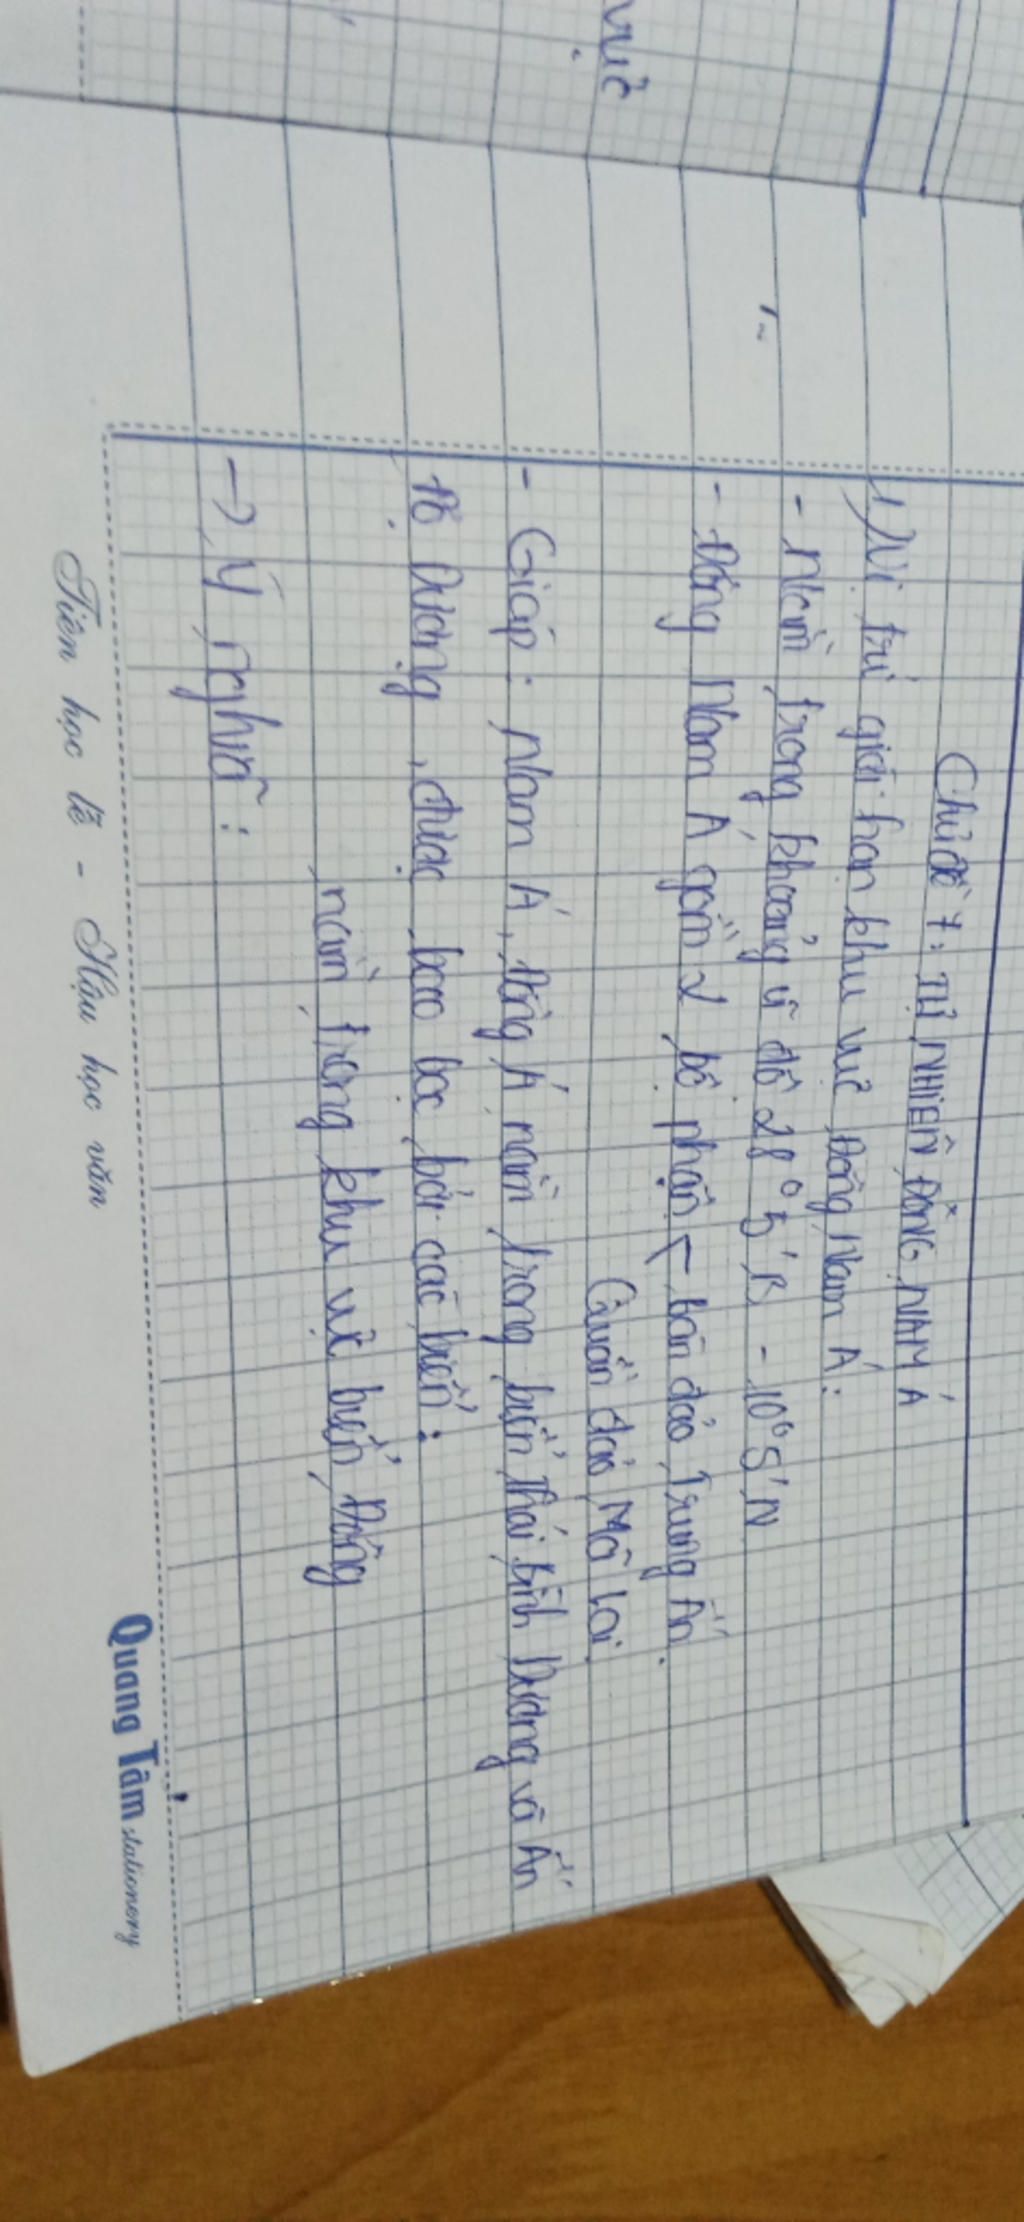 vực
Chủ đề 7: TỰ NHIÊN ĐÔNG NAM Á
1) Vị trí giới hạn khu vực Đông Nam Á:
- Nằm trong khoảng vĩ độ 28°5'B - 10°5'N
- Đông Nam Á gồm 2 bộ phận < bán đảo Trung Ấn.
Quần đảo Mã Lai.
- Giáp: Nam Á, Đông Á nằm trong biển Thái Bình Dương và Ấn
Độ Dương, được bao bọc bởi các biển:
nằm trong khu vực biển Đông
→ Ý nghĩa:
Tiên học lễ - Hậu học văn
Quang Tâm stationery